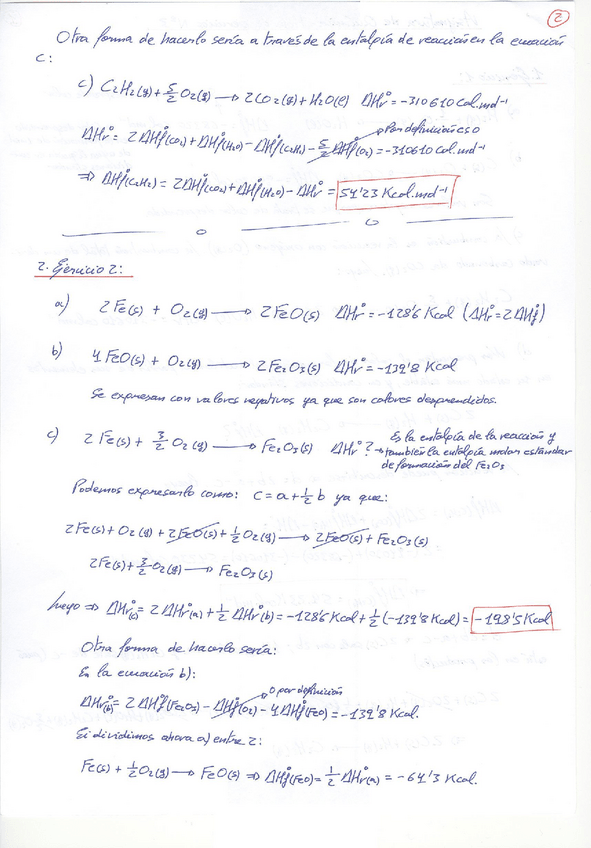 2
Otra forma de hacerlo sería a través de la entalpía de reacción en la ecuación
C:
c) C₂H₂(g) + 5/2 O₂(g) → 2CO₂(g) + H₂O(l) ΔHr° = -310610 Cal.mol⁻¹
Por definición es 0
ΔHr° = 2ΔHf°(CO₂) + ΔHf°(H₂O) - ΔHf°(C₂H₂) - 5/2 ΔHf°(O₂) = -310610 Cal.mol⁻¹
⇒ ΔHf°(C₂H₂) = 2ΔHf°(CO₂) + ΔHf°(H₂O) - ΔHr° = 54'23 Kcal.mol⁻¹
2. Ejercicio 2:
a) 2Fe(s) + O₂(g) → 2FeO(s) ΔHr° = -128'6 Kcal (ΔHr° = 2ΔHf°)
b) 4FeO(s) + O₂(g) → 2Fe₂O₃(s) ΔHr° = -139'8 Kcal
Se expresan con valores negativos ya que son calores desprendidos.
c) 2Fe(s) + 3/2 O₂(g) → Fe₂O₃(s) ΔHr°? → Es la entalpía de la reacción y
también la entalpía molar estándar
de formación del Fe₂O₃
Podemos expresarlo como: C = a + 1/2 b ya que:
2Fe(s) + O₂(g) + 2FeO(s) + 1/2 O₂(g) → 2FeO(s) + Fe₂O₃(s)
2Fe(s) + 3/2 O₂(g) → Fe₂O₃(s)
luego ⇒ ΔHr°(c) = 2ΔHr°(a) + 1/2 ΔHr°(b) = -128'6 Kcal + 1/2 (-139'8 Kcal) = -198'5 Kcal
Otra forma de hacerlo sería:
En la ecuación b):
0 por definición
ΔHr°(b) = 2ΔHf°(Fe₂O₃) - ΔHf°(O₂) - 4ΔHf°(FeO) = -139'8 Kcal.
Si dividimos ahora a) entre 2:
Fe(s) + 1/2 O₂(g) → FeO(s) ⇒ ΔHf°(FeO) = 1/2 ΔHr°(a) = -64'3 Kcal.